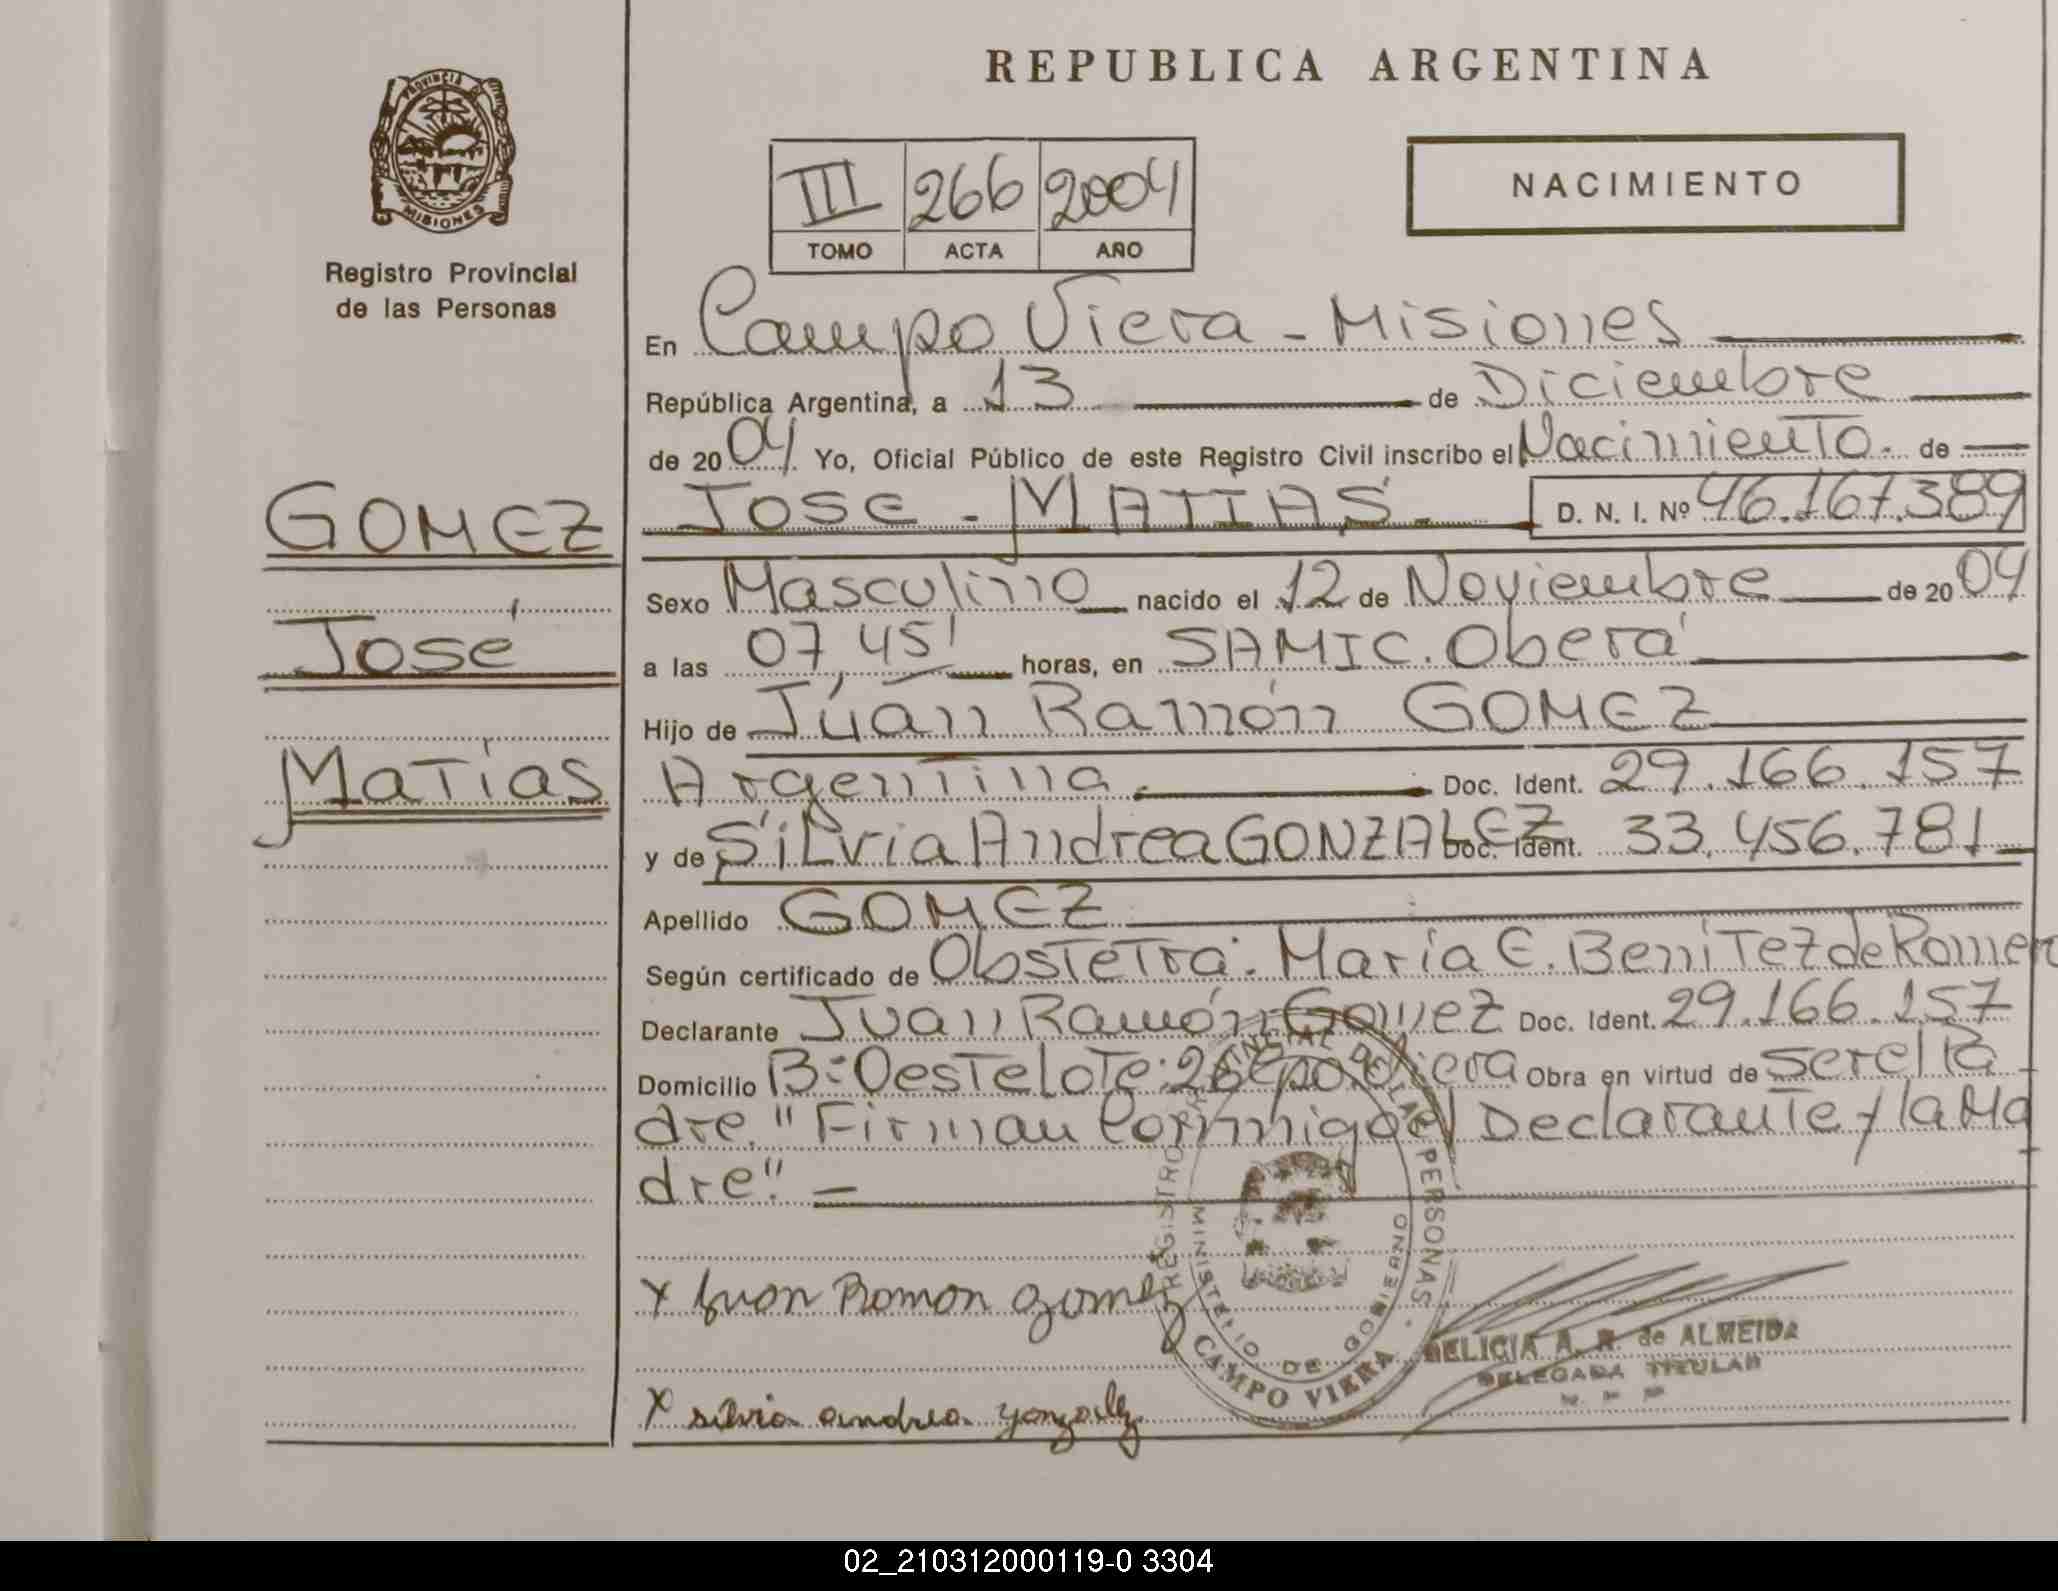 REPUBLICA ARGENTINA
PROVINCIA DE MISIONES
Registro Provincial
de las Personas
III 266 2004
TOMO ACTA AÑO
NACIMIENTO
En Campo Viera - Misiones
República Argentina, a 13 de Diciembre
de 2004 Yo, Oficial Público de este Registro Civil inscribo el Nacimiento. de
JOSE - MATIAS - D. N. I. Nº 46.167.389
GOMEZ
José
Matías
Sexo Masculino nacido el 12 de Noviembre de 2004
a las 07,45' horas, en SAMIC. Oberá
Hijo de Júan Ramón GOMEZ
Argentina. Doc. Ident. 29.166.157
y de SiLvia Andrea GONZALEZ Doc. Ident. 33.456.781
Apellido GOMEZ
Según certificado de Obstetra: María E. Benitez de Romero
Declarante Juan Ramón Gomez Doc. Ident. 29.166.157
Domicilio B: Oeste Lote: 26 Cpo. Viera Obra en virtud de ser el Pa
dre. "Firman Conmigo el Declarante y la Ma
dre". -
x Juan Ramon gomez
x silvia andrea gonzalez
REGISTRO PROVINCIAL DE LAS PERSONAS
MINISTERIO DE GOBIERNO
CAMPO VIERA
DELICIA A. R. de ALMEIDA
DELEGADA TITULAR
02_210312000119-0 3304